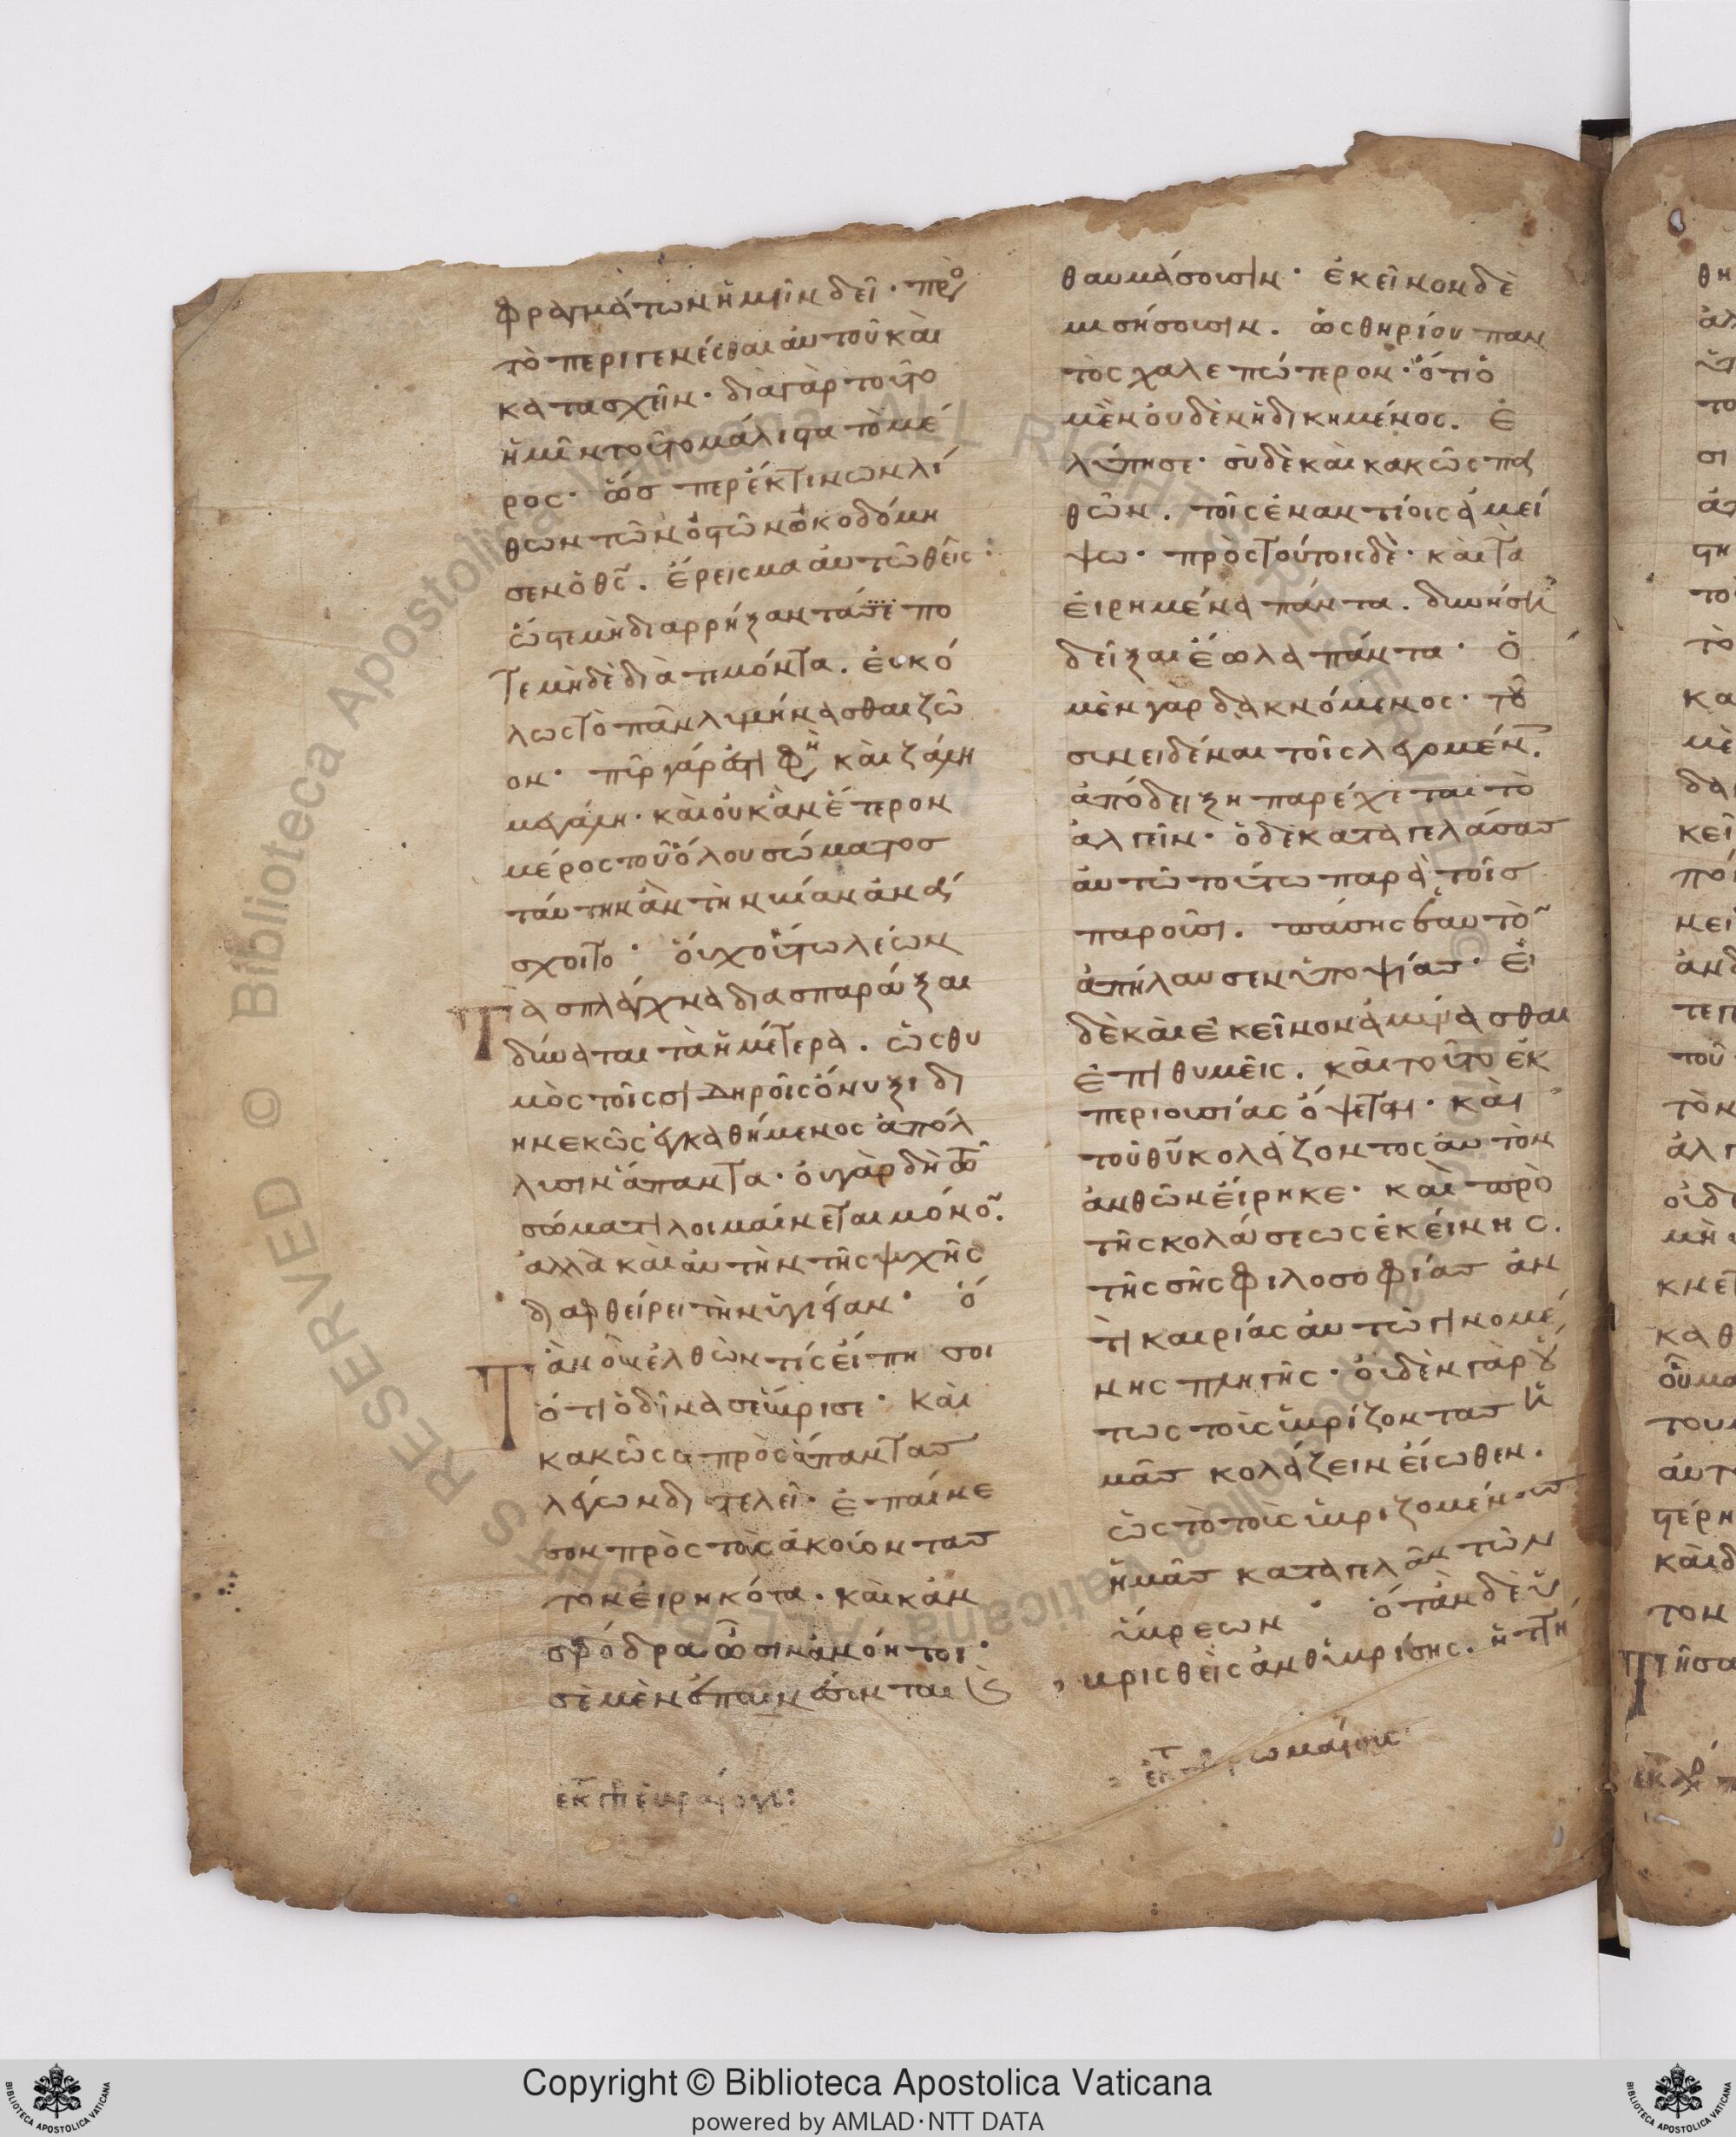 φραγμάτων ἡμῖν δεῖ· πρὸς
τὸ περιγενέσθαι αὐτοῦ καὶ
κατασχεῖν· διὰ γὰρ τοῦτο
ἡμῖν τοῦτο μάλιστα τὸ μέ
ρος· ὥσπερ ἔκ τινων λί
θων τῶν ὀστῶν ὠκοδόμη
σεν ὁ θς̅. ἔρεισμα αὐτῶ θεὶς·
ὥστε μὴ διαρρήξαντά πο
τε μὴ δὲ διατεμόντα. εὐκό
λως τὸ πᾶν λυμήνασθαι ζῶ
ον· πῦρ γάρ ἐστι φη καὶ ζάλη
μεγάλη· καὶ οὐκ ἂν ἕτερον
μέρος τοῦ ὅλου σώματος
ταύτην ἂν τὴν βίαν ἀνά
σχοιτο· οὐχ οὕτω λέων
Τὰ σπλάγχνα διασπαράξαι
δύναται τὰ ἡμέτερα. ὡς θυ
μὸς τοῖς σιδηροῖς ὄνυξι δι
ηνεκῶς ἐγκαθήμενος ἀπόλ
λυσιν ἅπαντα· οὐ γὰρ δὴ τῶ
στόματι λοιμαίνεται μόνον.
ἀλλὰ καὶ αὐτὴν τῆς ψυχῆς
διαφθείρει τὴν ὑγίειαν· ὅ
Τ ἂν οὖν ἐλθών τίς εἴπη σοι
ὅτι ὁ δεῖνα σε ὕβρισε· καὶ
κακῶς σε πρὸς ἅπαντας
λέγων διατελεῖ· ἐπαίνε
σον πρὸς τοὺς ἀκούοντας
τὸν εἰρηκότα. καὶ κὰν
σφόδρα ὦσιν ἀνόητοι·
σὲ μὲν ἐπαινέσονται καὶ
ἐκ τῆς πρὸς ἑβραίους:
θαυμάσουσιν· ἐκεῖνον δὲ
μισήσουσιν. ὡς θηρίου παν
τὸς χαλεπώτερον· ὅτι ὁ
μὲν οὐδὲν ἠδικημένος. ἐ
λύπησε· σὺ δὲ καὶ κακῶς πα
θὼν. τοῖς ἐναντίοις ἀμεί
ψω· πρὸς τούτοις δὲ· καὶ τὰ
εἰρημένα πάντα. δυνήση
δεῖξαι ἕωλα πάντα· ὁ
μὲν γὰρ δακνόμενος· τοῦ
συνειδέναι τοῖς λεγομένοις.
ἀπόδειξη παρέχεται τὸ
ἀλγεῖν· ὁ δὲ καταγελάσας
αὐτῶ τούτω παρὰ τοῖς
παροῦσι. πάσης ἑαυτὸν
ἀπήλαυσεν ὑποψίας· εἰ
δὲ καὶ ἐκεῖνον ἀμύνασθαι
ἐπιθυμεῖς. καὶ τοῦτο ἐκ
περιουσίας ὄψεται· καὶ
τοῦ θυ̅ κολάζοντος αὐτὸν
ἀνθῶν εἴρηκε· καὶ πρὸ
τῆς κολάσεως ἐκείνης.
τῆς σῆς φιλοσοφίας ἀν
τὶ καιρίας αὐτῶ γινομέ
νης πληγῆς· οὐδὲν γὰρ οὕ
τως τοὺς ὑβρίζοντας ἡ
μᾶς κολάζειν εἴωθεν.
ὡς τὸ τοὺς ὑβριζομένους
ἡμᾶς καταγελᾶν τῶν
ὕβρεων· ὅταν δὲ ὑ
βρισθεὶς ἀνθυβρίσης. ἢ τὴ
ἐκ τ πρ ρωμαίους